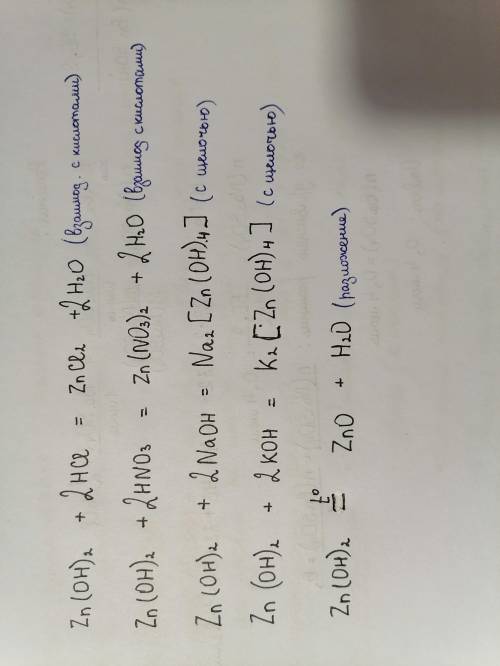 Zn(OH)₂ + 2HCl = ZnCl₂ + 2H₂O (взаимод. с кислотами)
Zn(OH)₂ + 2HNO₃ = Zn(NO₃)₂ + 2H₂O (взаимод с кислотами)
Zn(OH)₂ + 2NaOH = Na₂[Zn(OH)₄] (с щелочью)
Zn(OH)₂ + 2KOH = K₂[Zn(OH)₄] (с щелочью)
Zn(OH)₂ =t°= ZnO + H₂O (разложение)